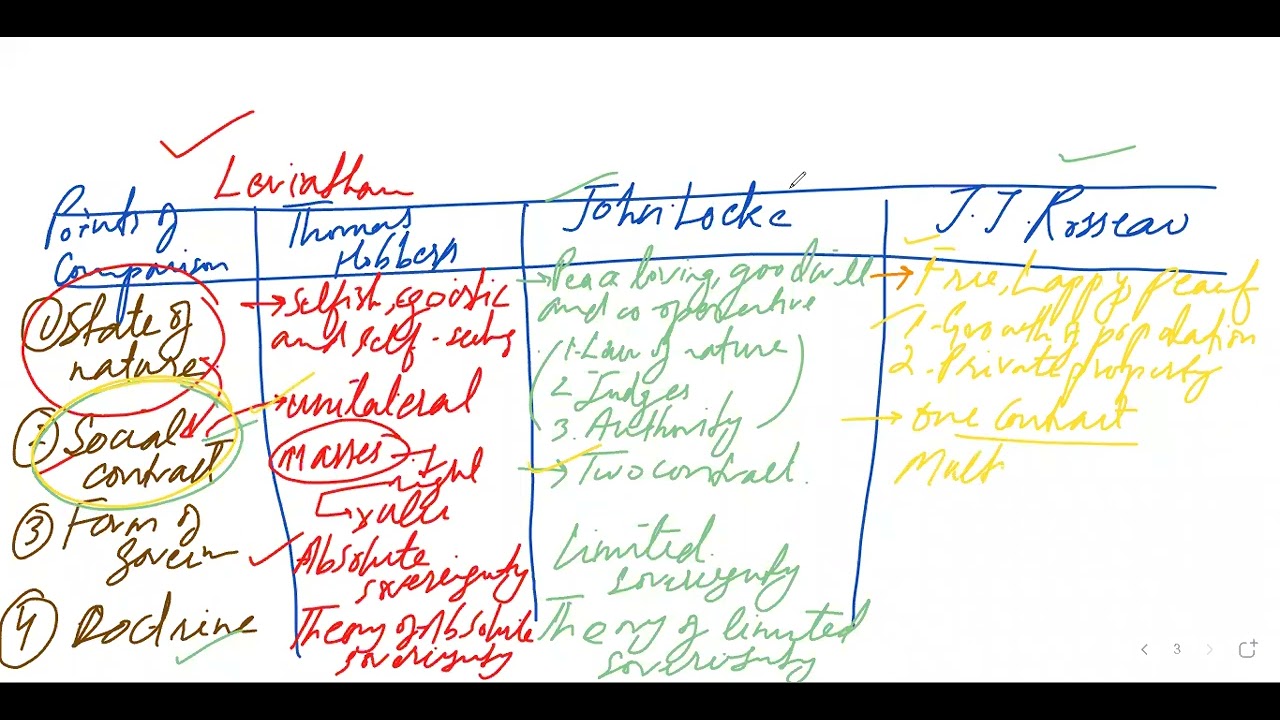 Leviathan
Points of
Comparison
Thomas
Hobbers
John Locke
J.J. Rosseau
① State of
nature
→ Selfish, egoistic
and self-seeking
→ Peace loving, goodwill
and cooperative
1. Law of nature
2. Judges
3. Authority
→ Free, happy, peacef
1. Growth of population
2. Private property
② Social
contract
→ unilateral
masses → right
→ ruler
→ Two contract.
→ One Contract
Mult
③ Form of
govern
Absolute
sovereignty
Limited
sovereignty
④ Doctrine
Theory of Absolute
sovereignty
Theory of limited
sovereignty
3